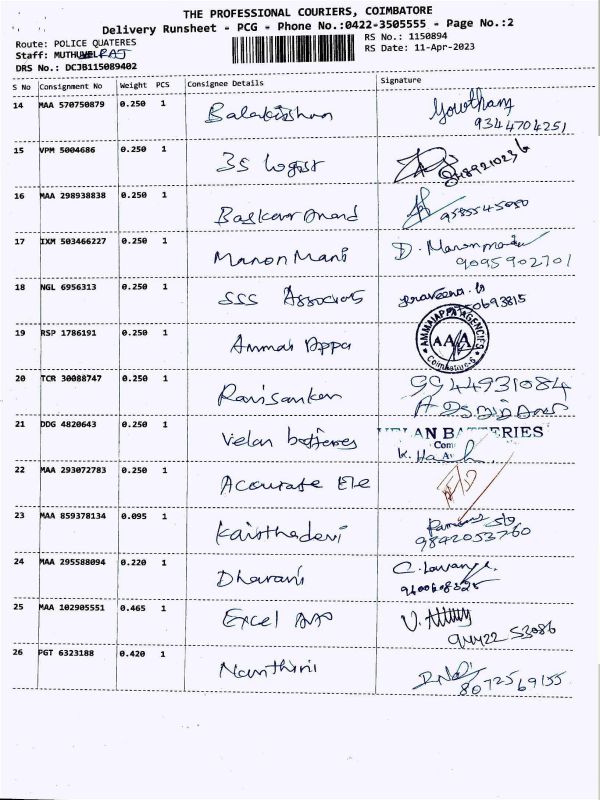 THE PROFESSIONAL COURIERS, COIMBATORE
Delivery Runsheet - PCG - Phone No.:0422-3505555 - Page No.:2
Route: POLICE QUATERES
RS No.: 1150894
Staff: MUTHUVELRAJ
RS Date: 11-Apr-2023
DRS No.: DCJB115089402
S No Consignment No Weight PCS Consignee Details Signature
14 MAA 570750879 0.250 1 Balakrishnan Gowtham
9344704251
15 VPM 5004686 0.250 1 3S Logist
16 MAA 298938838 0.250 1 Baskar Anand 9585545050
17 IXM 503466227 0.250 1 Manon Mani D. Manonmani
9095902701
18 NGL 6956313 0.250 1 SSS Associats Praveena.
19 RSP 1786191 0.250 1 Ammai Appa AMMAIAPPA AGENCIES
AAA
Coimbatore-5
20 TCR 30088747 0.250 1 Ravisanker 9944931084
21 DDG 4820643 0.250 1 Velan batteries VELAN BATTERIES
K. Ha
22 MAA 293072783 0.250 1 Accurate Ele
23 MAA 859378134 0.095 1 Kairthadevi
9842053760
24 MAA 295588094 0.220 1 Dharani C. Lavanya.
25 MAA 102905551 0.465 1 Excel
94422 53086
26 PGT 6323188 0.420 1 Nanthini
8072569155